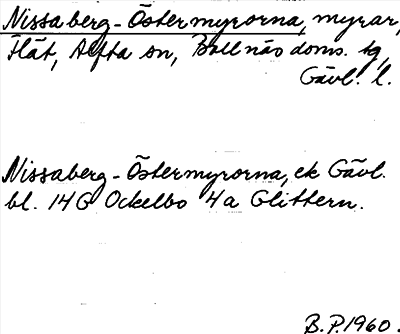 Nissaberg-Östermyrorna, myrar,
Flät, Alfta sn, Bollnäs doms. tg,
Gävl. l.
Nissaberg-Östermyrorna, ek Gävl.
bl. 14G Ockelbo 4a Glittern.
B.P. 1960.